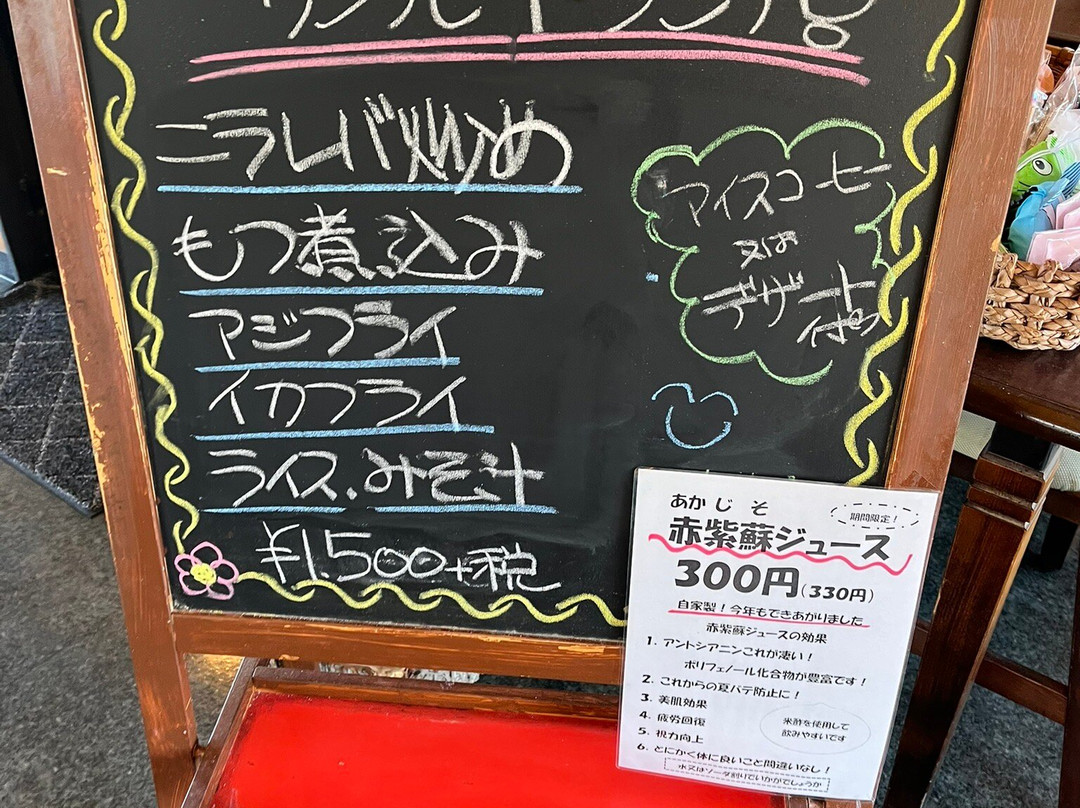 ニラレバ炒め
もつ煮込み
アジフライ
イカフライ
ライス・みそ汁
¥1.500+税
アイスコーヒー
又は
デザート
付き
あかじそ
赤紫蘇ジュース
期間限定！
300円(330円)
自家製！今年もできあがりました
赤紫蘇ジュースの効果
1. アントシアニンこれが凄い！
ポリフェノール化合物が豊富です！
2. これからの夏バテ防止に！
3. 美肌効果
4. 疲労回復
5. 視力向上
6. とにかく体に良いこと間違いなし！
米酢を使用して
飲みやすいです
水又はソーダ割りでいかがでしょうか